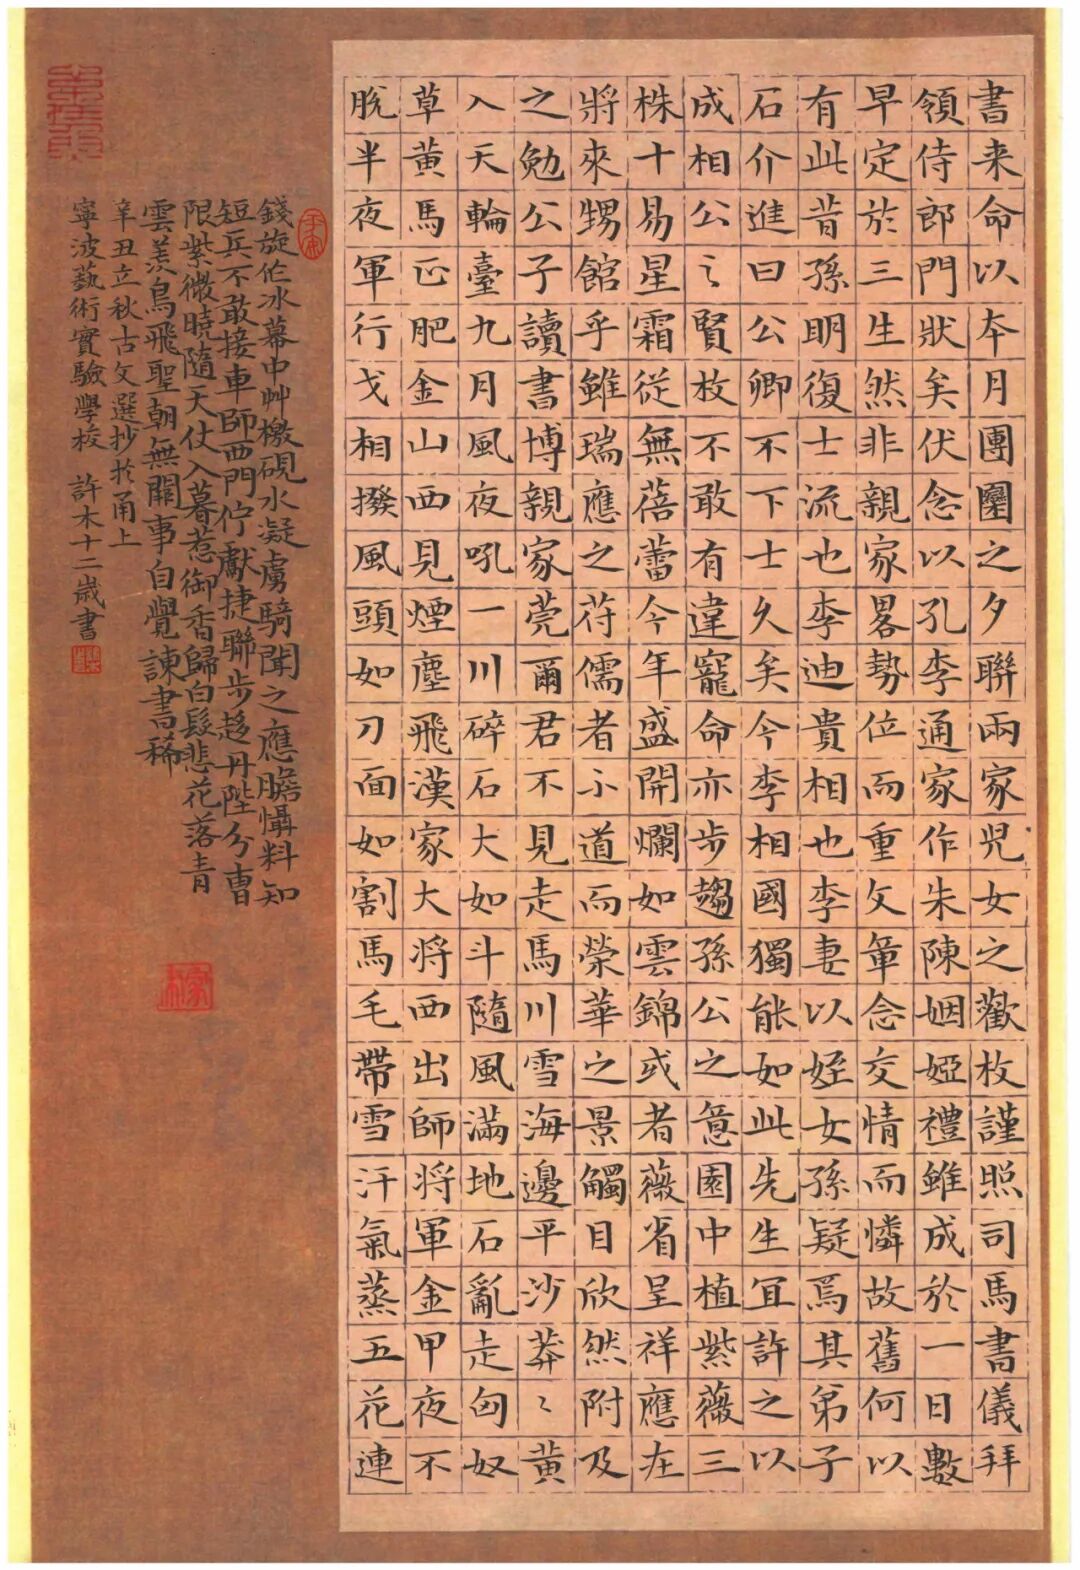 書来命以本月團圞之夕聯兩家児女之歡枚謹照司馬書儀拜
領侍郎門狀矣伏念以孔李通家作朱陳姻婭禮雖成於一日數
早定於三生然非親家畧勢位而重文章念交情而憐故舊何以
有此昔孫明復士流也李迪貴相也李妻以姪女孫疑焉其弟子
石介進曰公卿不下士久矣今李相國獨能如此先生宜許之以
成相公之賢枚不敢有違寵命亦步趨孫公之意園中植紫薇三
株十易星霜從無蓓蕾今年盛開爛如雲錦或者薇省呈祥應在
將來甥館乎雖瑞應之苻儒者不道而榮華之景觸目欣然附及
之勉公子讀書博親家莞爾君不見走馬川雪海邊平沙莽〻黃
入天輪臺九月風夜吼一川碎石大如斗隨風滿地石亂走匈奴
草黃馬正肥金山西見煙塵飛漢家大將西出師將軍金甲夜不
脫半夜軍行戈相撥風頭如刀面如割馬毛帶雪汗氣蒸五花連
錢旋作冰幕中艸檄硯水凝虜騎聞之應膽懾料知
短兵不敢接車師西門佇獻捷聯步趍丹陛分曹
限紫微曉隨天仗入暮惹御香歸白髮悲花落青
雲羨鳥飛聖朝無闕事自覺諫書稀
辛丑立秋古文選抄於甬上
寧波藝術實驗學校 許木十二歲書